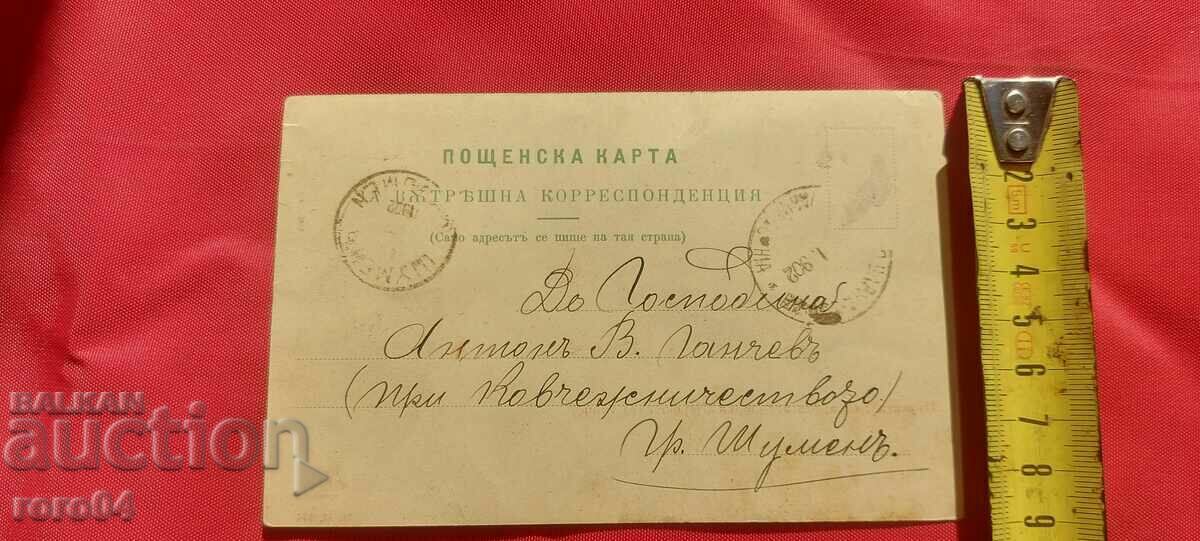 ПОЩЕНСКА КАРТА
ВѪТРѢШНА КОРРЕСПОНДЕНЦИЯ
(Само адресътъ се пише на тая страна)
ШУМЕНЪ
902
До Господина
Антонъ В. Ганчевъ
(при Ковчежничествозо)
гр. Шуменъ.
BALKAN
auction
roro04
2
3
4
5
6
7
8
9